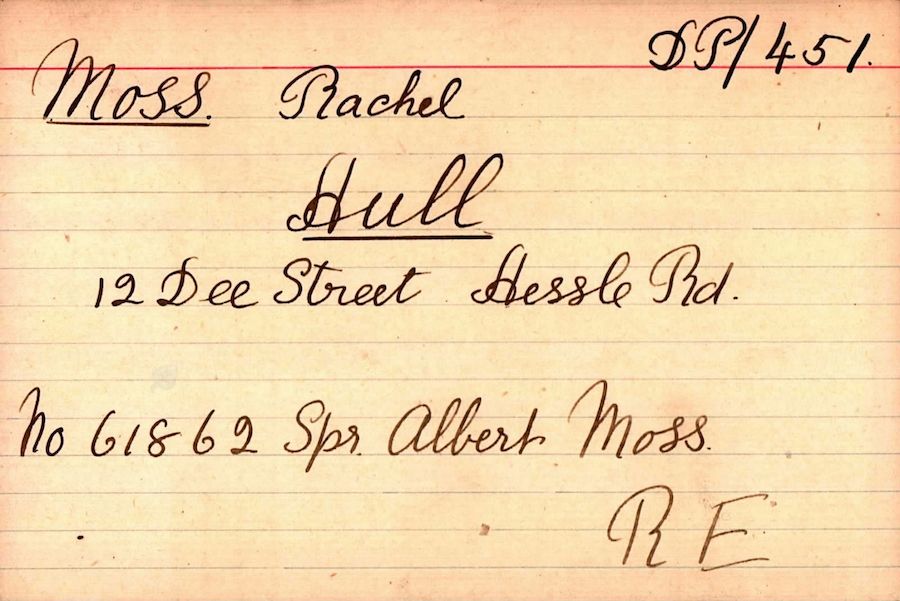 DP/451.
Moss. Rachel
Hull
12 Dee Street Hessle Rd.
No 61862 Spr. Albert Moss.
R E